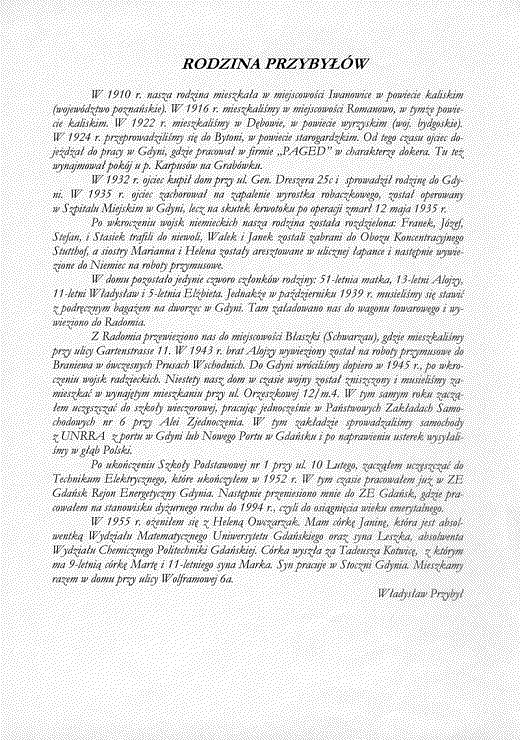 RODZINA PRZYBYŁÓW
W 1910 r. nasza rodzina mieszkała w miejscowości Iwanowice w powiecie kaliskim
(województwo poznańskie). W 1916 r. mieszkaliśmy w miejscowości Romanowo, w tymże powie-
cie kaliskim. W 1922 r. mieszkaliśmy w Dębowie, w powiecie wyrzyskim (woj. bydgoskie).
W 1924 r. przeprowadziliśmy się do Bytoni, w powiecie starogardzkim. Od tego czasu ojciec do-
jeżdżał do pracy w Gdyni, gdzie pracował w firmie „PAGED” w charakterze dokera. Tu też
wynajmował pokój u p. Karpusów na Grabówku.
W 1932 r. ojciec kupił dom przy ul. Gen. Dreszera 25c i sprowadził rodzinę do Gdy-
ni. W 1935 r. ojciec zachorował na zapalenie wyrostka robaczkowego, został operowany
w Szpitalu Miejskim w Gdyni, lecz na skutek krwotoku po operacji zmarł 12 maja 1935 r.
Po wkroczeniu wojsk niemieckich nasza rodzina została rozdzielona: Franek, Józef,
Stefan, i Stasiek trafili do niewoli, Walek i Janek zostali zabrani do Obozu Koncentracyjnego
Stutthof, a siostry Marianna i Helena zostały aresztowane w ulicznej łapance i następnie wywie-
zione do Niemiec na roboty przymusowe.
W domu pozostało jedynie czworo członków rodziny: 51-letnia matka, 13-letni Alojzy,
11-letni Władysław i 5-letnia Elżbieta. Jednakże w październiku 1939 r. musieliśmy się stawić
z podręcznym bagażem na dworzec w Gdyni. Tam załadowano nas do wagonu towarowego i wy-
wieziono do Radomia.
Z Radomia przewieziono nas do miejscowości Błaszki (Schwarzau), gdzie mieszkaliśmy
przy ulicy Gartenstrasse 11. W 1943 r. brat Alojzy wywieziony został na roboty przymusowe do
Braniewa w ówczesnych Prusach Wschodnich. Do Gdyni wróciliśmy dopiero w 1945 r., po wkro-
czeniu wojsk radzieckich. Niestety nasz dom w czasie wojny został zniszczony i musieliśmy za-
mieszkać w wynajętym mieszkaniu przy ul. Orzeszkowej 12/m.4. W tym samym roku zaczą-
łem uczęszczać do szkoły wieczorowej, pracując jednocześnie w Państwowych Zakładach Samo-
chodowych nr 6 przy Alei Zjednoczenia. W tym zakładzie sprowadzaliśmy samochody
z UNRRA z portu w Gdyni lub Nowego Portu w Gdańsku i po naprawieniu usterek wysyłali-
śmy w głąb Polski.
Po ukończeniu Szkoły Podstawowej nr 1 przy ul. 10 Lutego, zacząłem uczęszczać do
Technikum Elektrycznego, które ukończyłem w 1952 r. W tym czasie pracowałem już w ZE
Gdańsk Rejon Energetyczny Gdynia. Następnie przeniesiono mnie do ZE Gdańsk, gdzie pra-
cowałem na stanowisku dyżurnego ruchu do 1994 r., czyli do osiągnięcia wieku emerytalnego.
W 1955 r. ożeniłem się z Heleną Owczarzak. Mam córkę Janinę, która jest absol-
wentką Wydziału Matematycznego Uniwersytetu Gdańskiego oraz syna Leszka, absolwenta
Wydziału Chemicznego Politechniki Gdańskiej. Córka wyszła za Tadeusza Kotwicę, z którym
ma 9-letnią córkę Martę i 11-letniego syna Marka. Syn pracuje w Stoczni Gdynia. Mieszkamy
razem w domu przy ulicy Wolframowej 6a.
Władysław Przybył